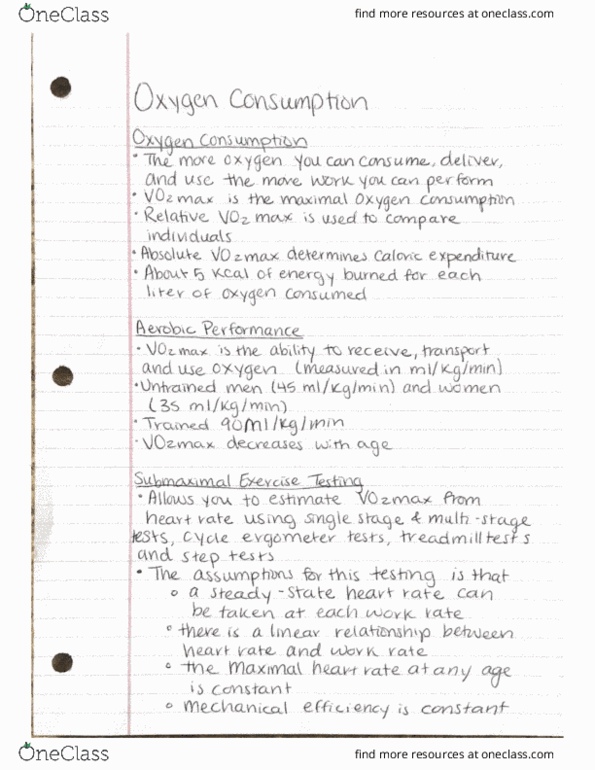 OneClass
find more resources at oneclass.com
Oxygen Consumption
Oxygen Consumption
• The more oxygen you can consume, deliver,
and use the more work you can perform
• VO2 max is the maximal oxygen consumption
• Relative VO2 max is used to compare
individuals
• Absolute VO2max determines caloric expenditure
• About 5 Kcal of energy burned for each
liter of oxygen consumed
Aerobic Performance
• VO2max is the ability to receive, transport
and use oxygen (measured in ml/kg/min)
• Untrained men (45 ml/kg/min) and women
(35 ml/kg/min)
• Trained 90ml/kg/min
• VO2max decreases with age
Submaximal Exercise Testing
• Allows you to estimate VO2max from
heart rate using single stage & multi-stage
tests, cycle ergometer tests, treadmill tests
and step tests
• The assumptions for this testing is that
o a steady-state heart rate can
be taken at each work rate
o there is a linear relationship between
heart rate and work rate
o the maximal heart rate at any age
is constant
o mechanical efficiency is constant
OneClass
find more resources at oneclass.com